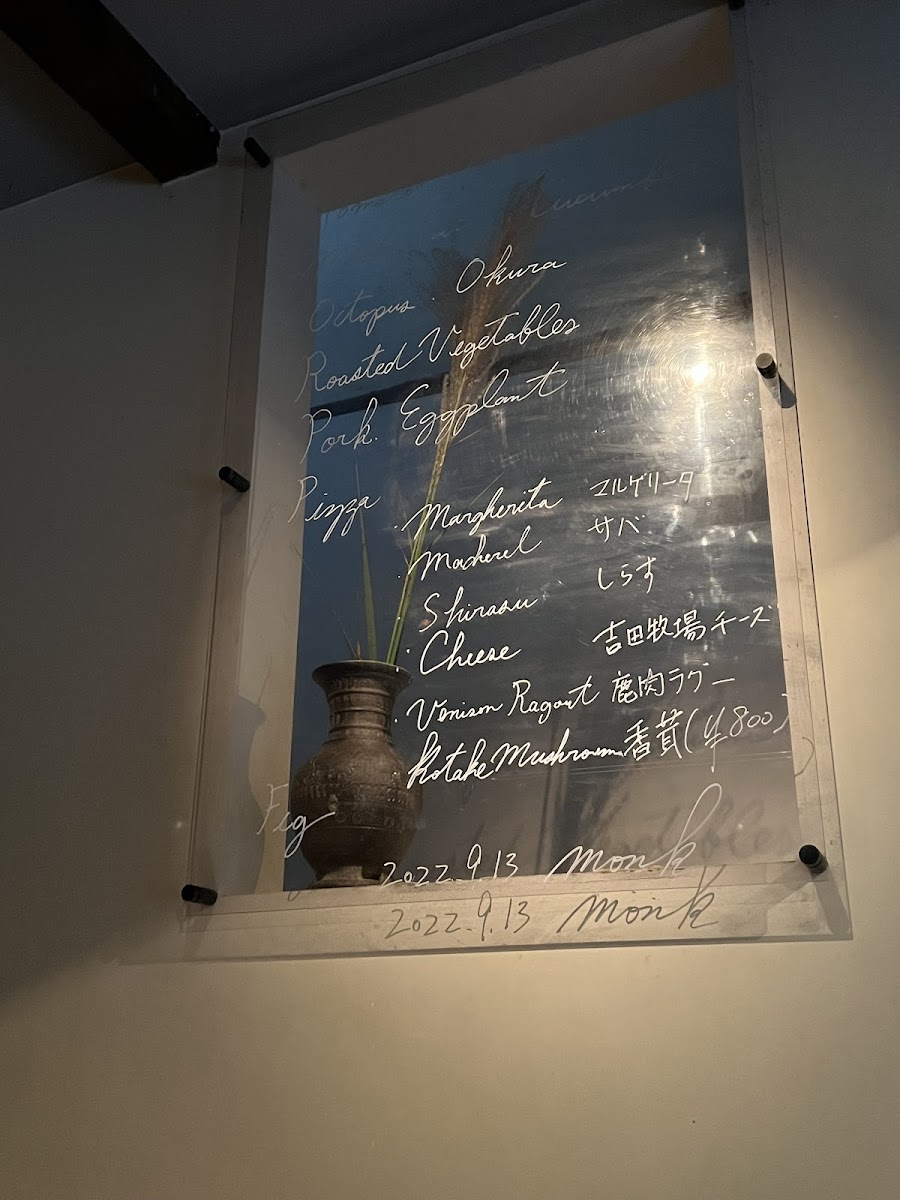 Octopus . Okura
Roasted Vegetables
Pork. Eggplant
Pizza . Margherita マルゲリータ
. Mackerel サバ
. Shirasu しらす
. Cheese 吉田牧場チーズ
. Venison Ragout 鹿肉ラグー
Kotake Mushroom 香茸(¥800)
Fig
2022.9.13 monk